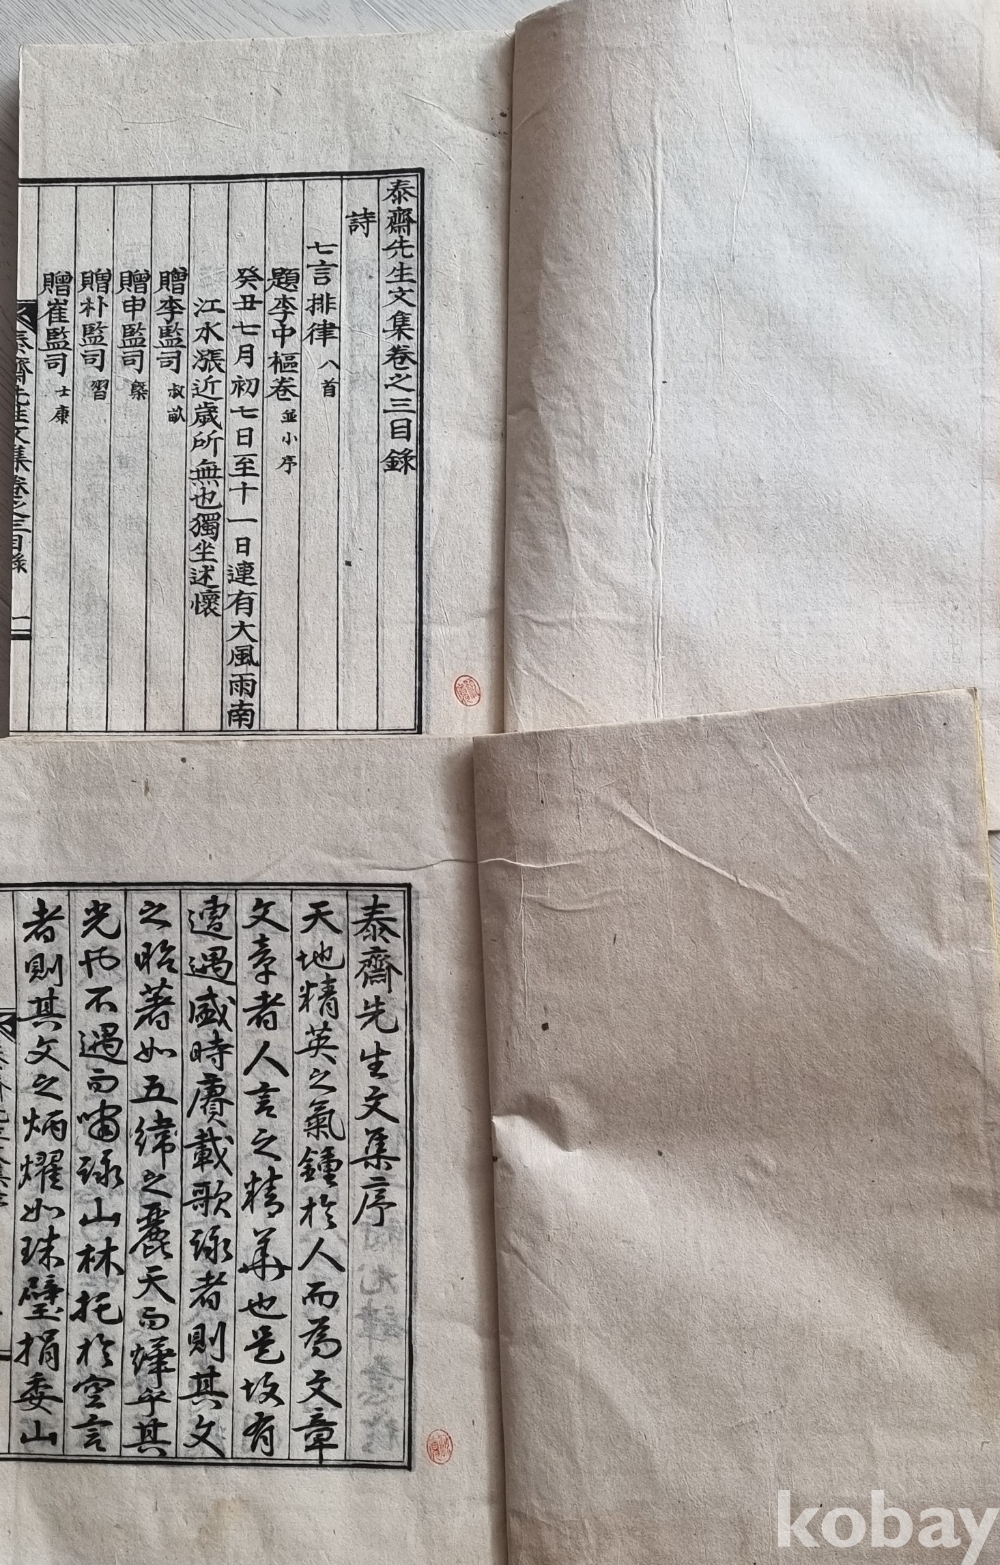 泰齋先生文集卷之三目錄
詩
七言排律 八首
題李中樞卷 並小序
癸丑七月初七日至十一日連有大風雨南
江水漲近歲所無也獨坐述懷
贈李監司 叔畝
贈申監司 槩
贈朴監司 習
贈崔監司 士康
泰齋先生文集卷之三目錄 一
泰齋先生文集序
天地精英之氣鍾於人而爲文章
文章者人言之精華也是故有
遭遇盛時賡載歌詠者則其文
之昭著如五緯之麗天而燁乎其
光也不遇而嘯詠山林托於空言
者則其文之炳燿如珠璧捐委山
kobay